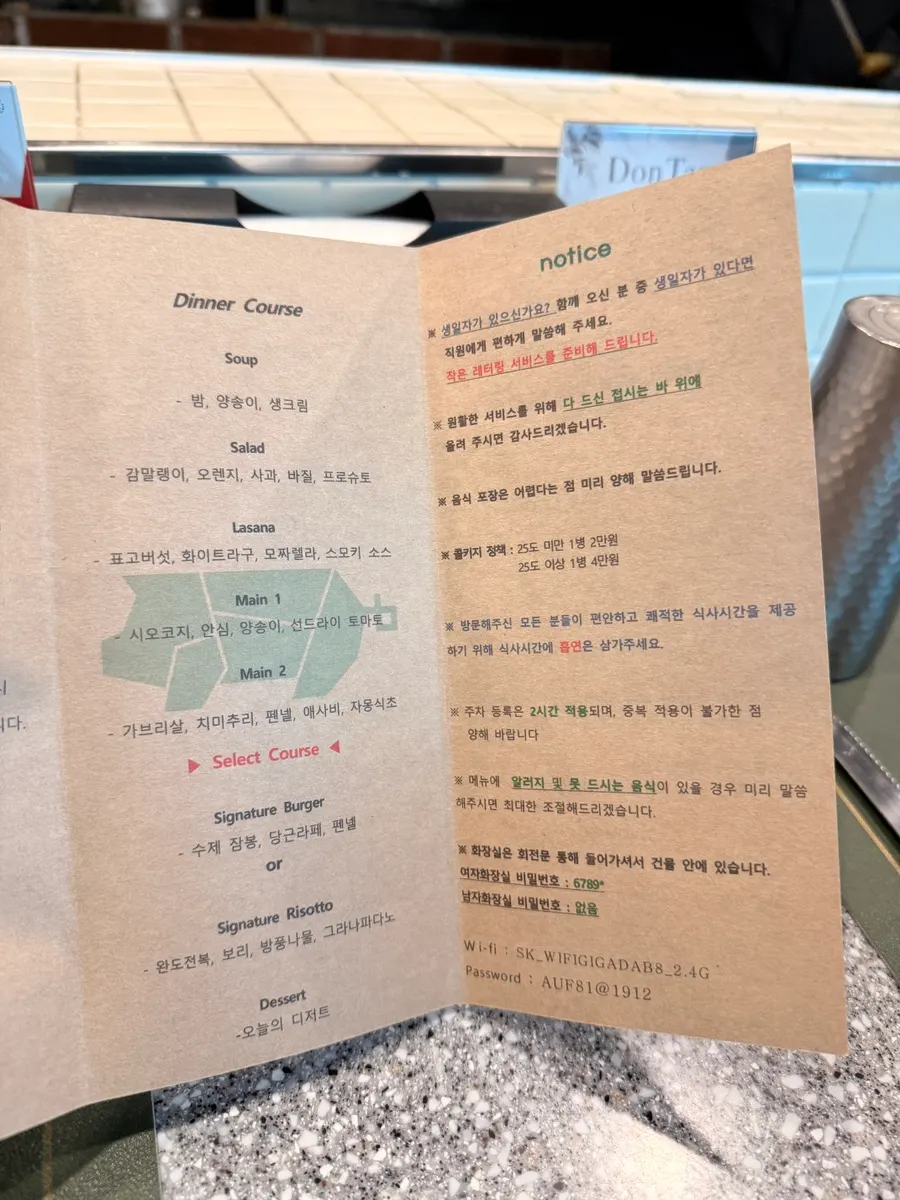 Don Ta
Dinner Course
Soup
- 밤, 양송이, 생크림
Salad
- 감말랭이, 오렌지, 사과, 바질, 프로슈토
Lasana
- 표고버섯, 화이트라구, 모짜렐라, 스모키 소스
Main 1
- 시오코지, 안심, 양송이, 선드라이 토마토
Main 2
- 가브리살, 치미추리, 펜넬, 애사비, 자몽식초
▶ Select Course ◀
Signature Burger
- 수제 잠봉, 당근라페, 펜넬
or
Signature Risotto
- 완도전복, 보리, 방풍나물, 그라나파다노
Dessert
-오늘의 디저트
니다.
notice
※ 생일자가 있으신가요? 함께 오신 분 중 생일자가 있다면
직원에게 편하게 말씀해 주세요.
작은 레터링 서비스를 준비해 드립니다.
※ 원활한 서비스를 위해 다 드신 접시는 바 위에
올려 주시면 감사드리겠습니다.
※ 음식 포장은 어렵다는 점 미리 양해 말씀드립니다.
※ 콜키지 정책 : 25도 미만 1병 2만원
25도 이상 1병 4만원
※ 방문해주신 모든 분들이 편안하고 쾌적한 식사시간을 제공
하기 위해 식사시간에 흡연은 삼가주세요.
※ 주차 등록은 2시간 적용되며, 중복 적용이 불가한 점
양해 바랍니다
※ 메뉴에 알러지 및 못 드시는 음식이 있을 경우 미리 말씀
해주시면 최대한 조절해드리겠습니다.
※ 화장실은 회전문 통해 들어가셔서 건물 안에 있습니다.
여자화장실 비밀번호 : 6789*
남자화장실 비밀번호 : 없음
Wi-fi : SK_WIFIGIGADAB8_2.4G
Password : AUF81@1912